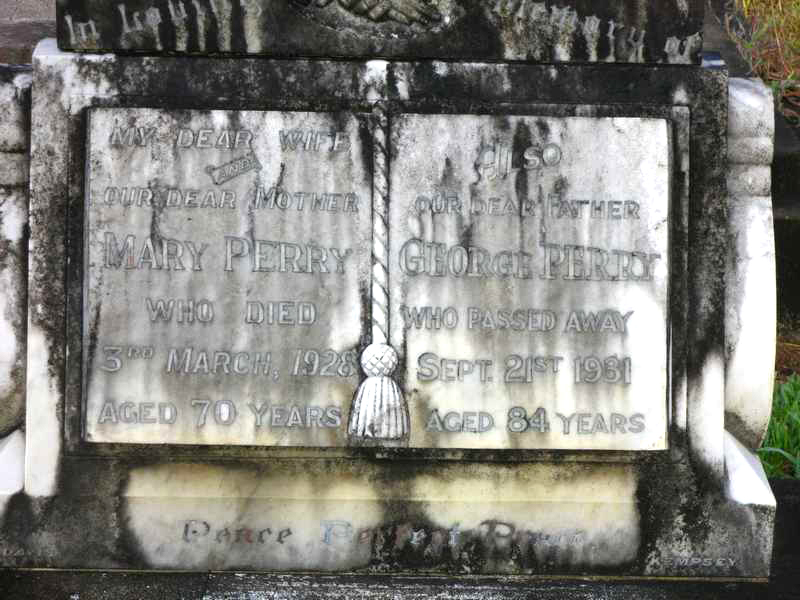 In Loving Memory of
MY DEAR WIFE
AND
OUR DEAR MOTHER
MARY PERRY
WHO DIED
3RD MARCH, 1928
AGED 70 YEARS
ALSO
OUR DEAR FATHER
GEORGE PERRY
WHO PASSED AWAY
SEPT. 21ST 1931
AGED 84 YEARS
Peace Perfect Peace
DAVIS
KEMPSEY